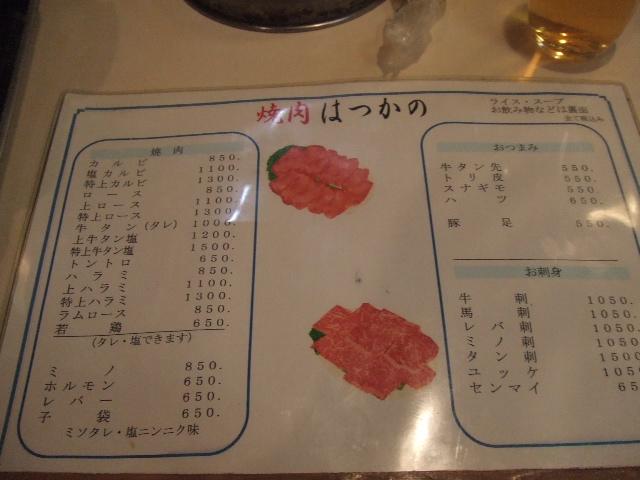 焼肉 はつかの
ライス・スープ
お飲み物などは裏面
全て税込み
焼肉
カルビ 850.
塩カルビ 1100.
特上カルビ 1300.
ロース 850.
上ロース 1100.
特上ロース 1300.
牛タン(タレ) 1000.
上牛タン塩 1200.
特上牛タン塩 1500.
トントロ 650.
ハラミ 850.
上ハラミ 1100.
特上ハラミ 1300.
ラムロース 850.
若鶏 650.
(タレ・塩できます)
ミノ 850.
ホルモン 650.
レバー 650.
子袋 650.
ミソタレ・塩ニンニク味
おつまみ
牛タン先 550.
トリ皮 550.
スナギモ 550.
ハツ 650.
豚足 550.
お刺身
牛刺 1050.
馬刺 1050.
レバ刺 1050.
ミノ刺 1050.
タン刺 1500
ユッケ 1050
センマイ 65